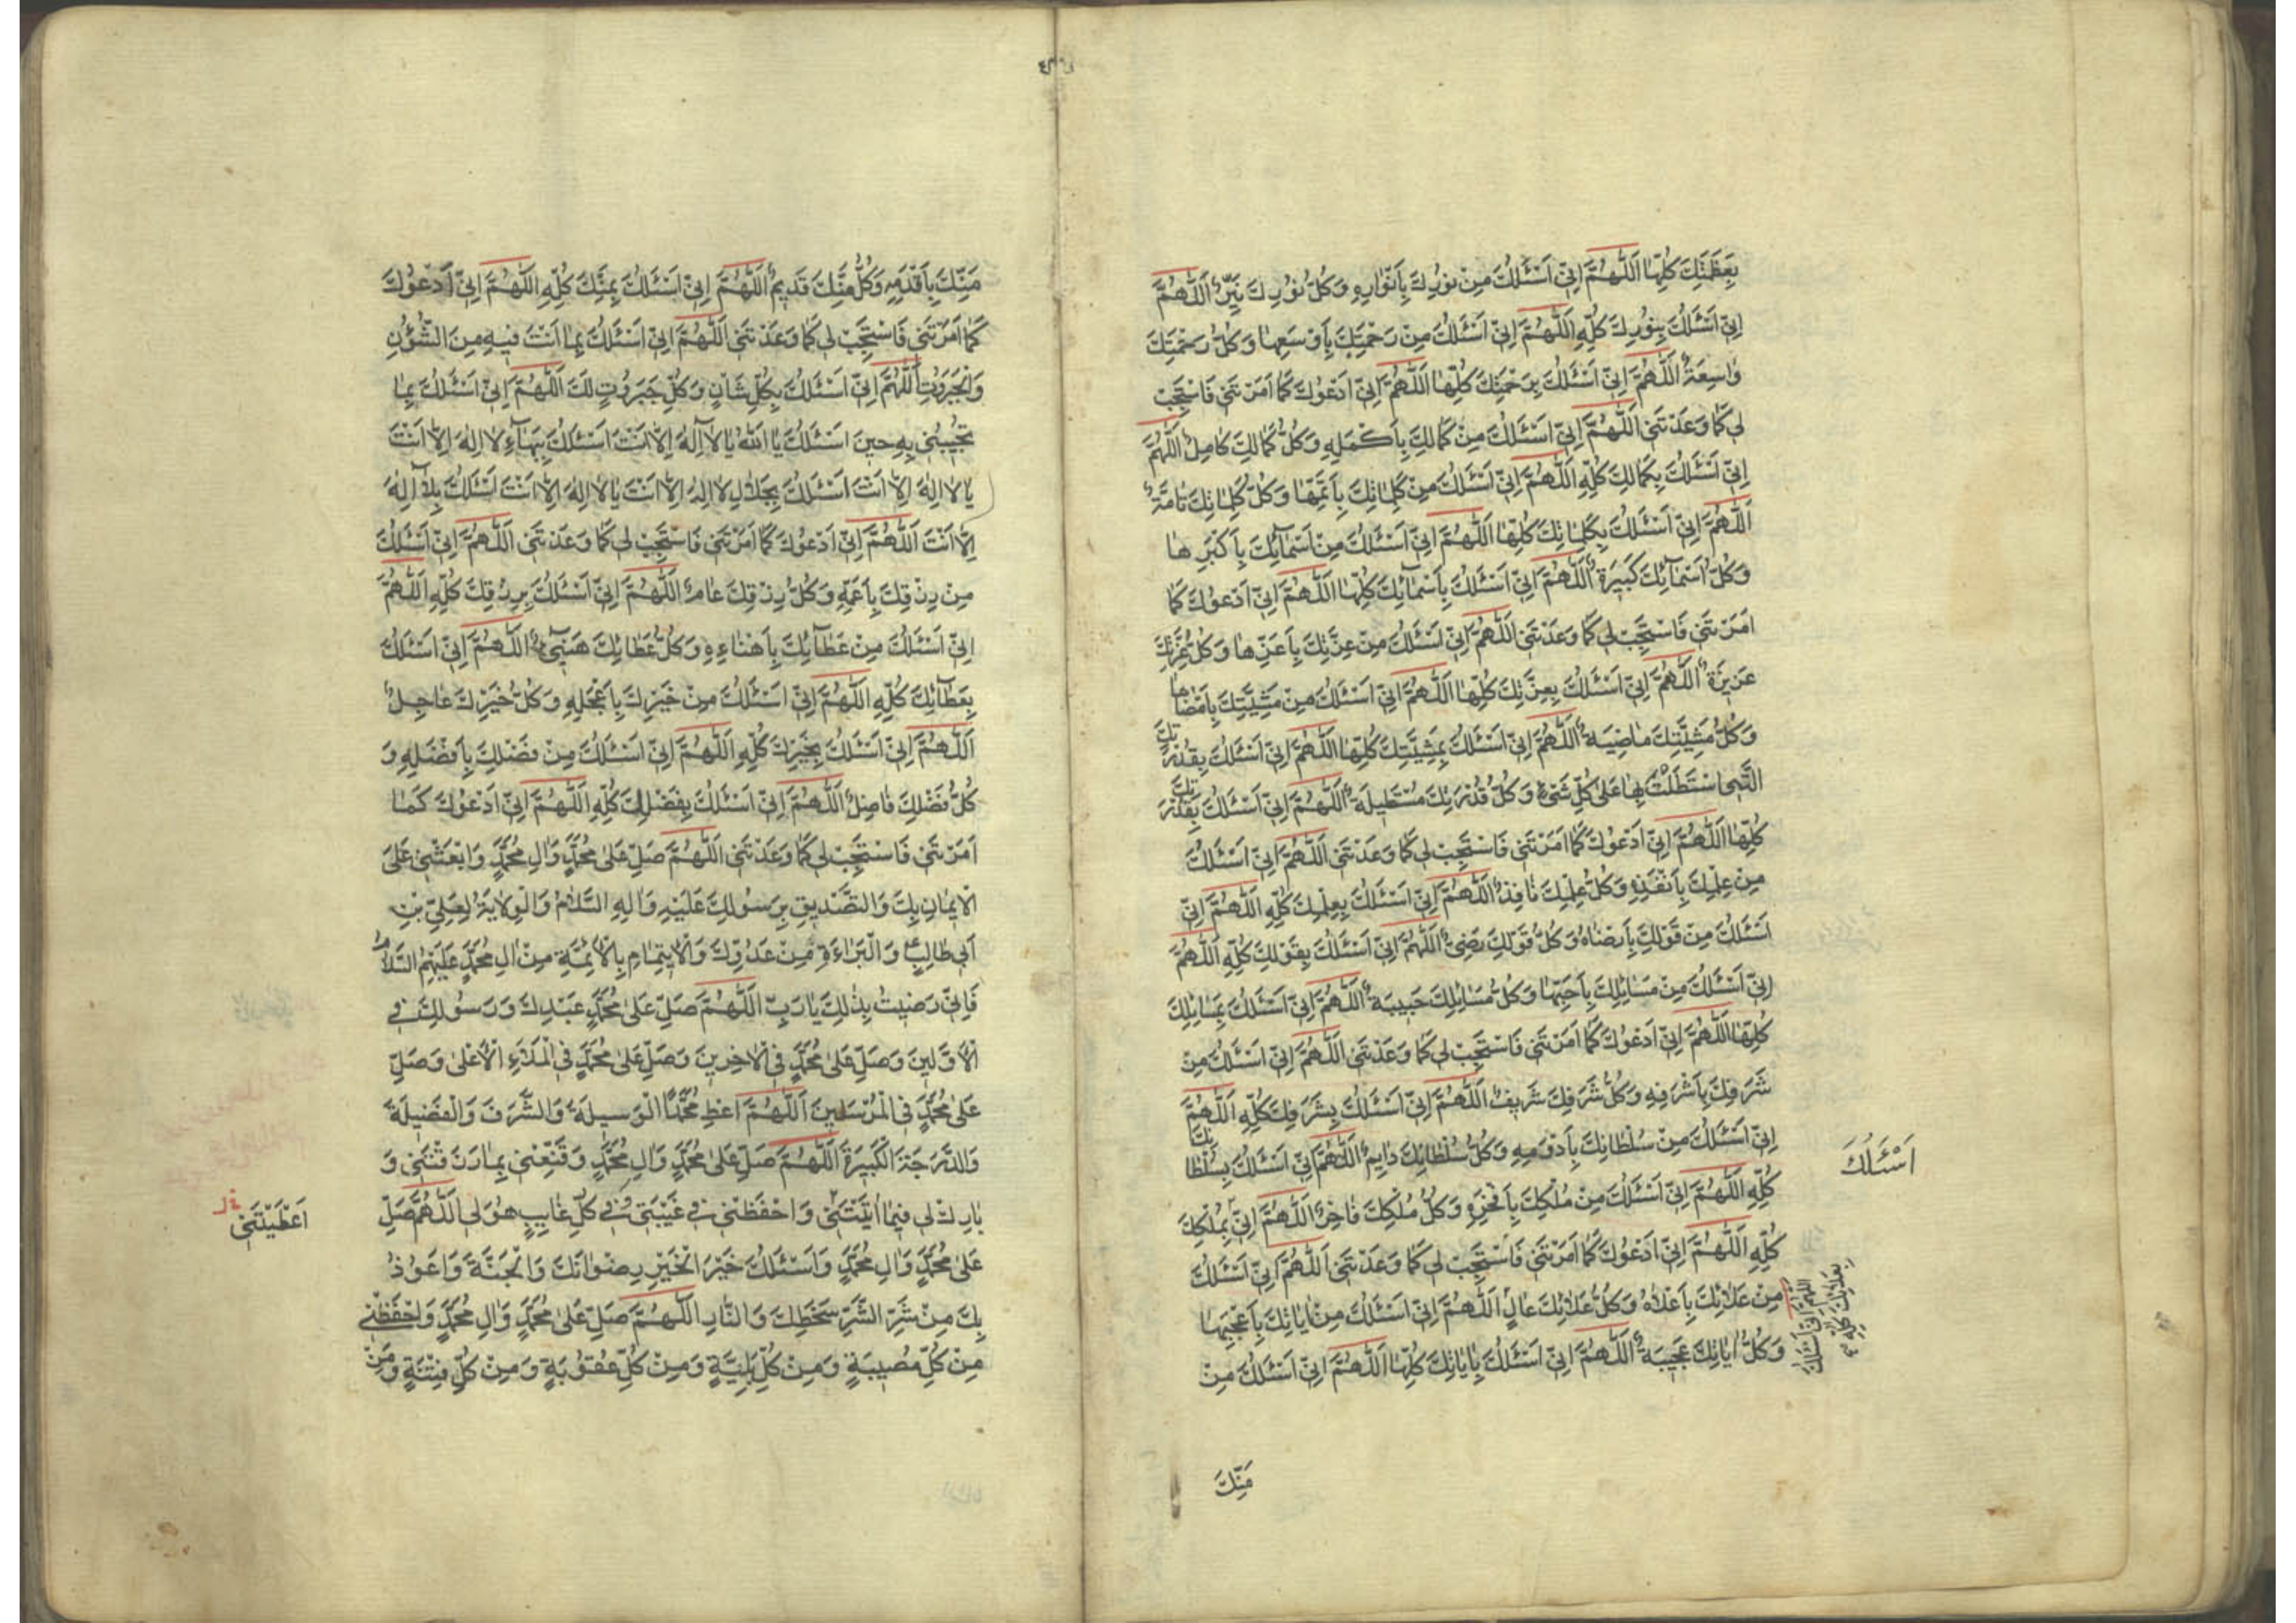 بِعَظَمَتِكَ كُلِّهَا اَللّٰهُمَّ اِنّىِ اَسْئَلُكَ مِنْ نوُرِكَ بِاَنْوٰارِهِ وَكُلُّ نوُرِكَ نَيِّرٌ اَللّٰهُمَّ
اِنّىِ اَسْئَلُكَ بِنوُرِكَ كُلِّهِ اَللّٰهُمَّ اِنّىِ اَسْئَلُكَ مِنْ رَحْمَتِكَ بِاَوْسَعِهٰا وَكُلُّ رَحْمَتِكَ
وٰاسِعَةٌ اَللّٰهُمَّ اِنّىِ اَسْئَلُكَ بِرَحْمَتِكَ كُلِّهٰا اَللّٰهُمَّ اِنّىِ اَدْعوُكَ كَمٰا اَمَرْتَنىِ فَاسْتَجِبْ
لىِ كَمٰا وَعَدْتَنىِ اَللّٰهُمَّ اِنّىِ اَسْئَلُكَ مِنْ كَمٰالِكَ بِاَكْمَلِهِ وَكُلُّ كَمٰالِكَ كٰامِلٌ اَللّٰهُمَّ
اِنّىِ اَسْئَلُكَ بِكَمٰالِكَ كُلِّهِ اَللّٰهُمَّ اِنّىِ اَسْئَلُكَ مِنْ كَلِمٰاتِكَ بِاَتَمِّهٰا وَكُلُّ كَلِمٰاتِكَ تٰامَّةٌ
اَللّٰهُمَّ اِنّىِ اَسْئَلُكَ بِكَلِمٰاتِكَ كُلِّهٰا اَللّٰهُمَّ اِنّىِ اَسْئَلُكَ مِنْ اَسْمٰآئِكَ بِاَكْبَرِهٰا
وَكُلُّ اَسْمٰآئِكَ كَبيِرَةٌ اَللّٰهُمَّ اِنّىِ اَسْئَلُكَ بِاَسْمٰآئِكَ كُلِّهٰا اَللّٰهُمَّ اِنّىِ اَدْعوُكَ كَمٰا
اَمَرْتَنىِ فَاسْتَجِبْ لىِ كَمٰا وَعَدْتَنىِ اَللّٰهُمَّ اِنّىِ اَسْئَلُكَ مِنْ عِزَّتِكَ بِاَعَزِّهٰا وَكُلُّ عِزَّتِكَ
عَزيِزَةٌ اَللّٰهُمَّ اِنّىِ اَسْئَلُكَ بِعِزَّتِكَ كُلِّهٰا اَللّٰهُمَّ اِنّىِ اَسْئَلُكَ مِنْ مَشِيَّتِكَ بِاَمْضٰاهٰا
وَكُلُّ مَشِيَّتِكَ مٰاضِيَةٌ اَللّٰهُمَّ اِنّىِ اَسْئَلُكَ بِمَشِيَّتِكَ كُلِّهٰا اَللّٰهُمَّ اِنّىِ اَسْئَلُكَ بِقُدْرَتِكَ
الَّتىِ اسْتَطَلْتَ بِهٰا عَلىٰ كُلِّ شَىْءٍ وَكُلُّ قُدْرَتِكَ مُسْتَطيِلَةٌ اَللّٰهُمَّ اِنّىِ اَسْئَلُكَ بِقُدْرَتِكَ
كُلِّهٰا اَللّٰهُمَّ اِنّىِ اَدْعوُكَ كَمٰا اَمَرْتَنىِ فَاسْتَجِبْ لىِ كَمٰا وَعَدْتَنىِ اَللّٰهُمَّ اِنّىِ اَسْئَلُكَ
مِنْ عِلْمِكَ بِاَنْفَذِهِ وَكُلُّ عِلْمِكَ نٰافِذٌ اَللّٰهُمَّ اِنّىِ اَسْئَلُكَ بِعِلْمِكَ كُلِّهِ اَللّٰهُمَّ اِنّىِ
اَسْئَلُكَ مِنْ قَوْلِكَ بِاَرْضٰاهُ وَكُلُّ قَوْلِكَ رَضِىٌّ اَللّٰهُمَّ اِنّىِ اَسْئَلُكَ بِقَوْلِكَ كُلِّهِ اَللّٰهُمَّ
اِنّىِ اَسْئَلُكَ مِنْ مَسٰائِلِكَ بِاَحَبِّهٰا وَكُلُّ مَسٰائِلِكَ حَبيِبَةٌ اَللّٰهُمَّ اِنّىِ اَسْئَلُكَ بِمَسٰائِلِكَ
كُلِّهٰا اَللّٰهُمَّ اِنّىِ اَدْعوُكَ كَمٰا اَمَرْتَنىِ فَاسْتَجِبْ لىِ كَمٰا وَعَدْتَنىِ اَللّٰهُمَّ اِنّىِ اَسْئَلُكَ مِنْ
شَرَفِكَ بِاَشْرَفِهِ وَكُلُّ شَرَفِكَ شَريِفٌ اَللّٰهُمَّ اِنّىِ اَسْئَلُكَ بِشَرَفِكَ كُلِّهِ اَللّٰهُمَّ
اِنّىِ اَسْئَلُكَ مِنْ سُلْطٰانِكَ بِاَدْوَمِهِ وَكُلُّ سُلْطٰانِكَ دٰايِمٌ اَللّٰهُمَّ اِنّىِ اَسْئَلُكَ بِسُلْطٰانِكَ
كُلِّهِ اَللّٰهُمَّ اِنّىِ اَسْئَلُكَ مِنْ مُلْكِكَ بِاَفْخَرِهِ وَكُلُّ مُلْكِكَ فٰاخِرٌ اَللّٰهُمَّ اِنّىِ بِمُلْكِكَ
اَسْئَلُكَ
كُلِّهِ اَللّٰهُمَّ اِنّىِ اَدْعوُكَ كَمٰا اَمَرْتَنىِ فَاسْتَجِبْ لىِ كَمٰا وَعَدْتَنىِ اَللّٰهُمَّ اِنّىِ اَسْئَلُكَ
مِنْ عَلٰائِكَ بِاَعْلٰاهُ وَكُلُّ عَلٰائِكَ عٰالٍ اَللّٰهُمَّ اِنّىِ اَسْئَلُكَ مِنْ اٰيٰاتِكَ بِاَعْجَبِهٰا
اللّهمّ اِنّى اَسْئَلُكَ
بِعَلائِكَ كُلِّهِ
وَكُلُّ اٰيٰاتِكَ عَجيِبَةٌ اَللّٰهُمَّ اِنّىِ اَسْئَلُكَ بِاٰيٰاتِكَ كُلِّهٰا اَللّٰهُمَّ اِنّىِ اَسْئَلُكَ مِنْ
مَنِّكَ
مَنِّكَ بِاَقْدَمِهِ وَكُلُّ مَنِّكَ قَديِمٌ اَللّٰهُمَّ اِنّىِ اَسْئَلُكَ بِمَنِّكَ كُلِّهِ اَللّٰهُمَّ اِنّىِ اَدْعوُكَ
كَمٰا اَمَرْتَنىِ فَاسْتَجِبْ لىِ كَمٰا وَعَدْتَنىِ اَللّٰهُمَّ اِنّىِ اَسْئَلُكَ بِمٰا اَنْتَ فيِهِ مِنَ الشُّؤُنِ
وَالْجَبَروُتِ اَللّٰهُمَّ اِنّىِ اَسْئَلُكَ بِكُلِّ شَانٍ وَكُلِّ جَبَروُتٍ لَكَ اَللّٰهُمَّ اِنّىِ اَسْئَلُكَ بِمٰا
تُجيِبُنىِ بِهِ حيِنَ اَسْئَلُكَ يٰا اَللّٰهُ يٰا لٰا اِلٰهَ اِلّٰا اَنْتَ اَسْئَلُكَ بِبَهٰآءِ لٰا اِلٰهَ اِلّٰا اَنْتَ
يٰا لٰا اِلٰهَ اِلّٰا اَنْتَ اَسْئَلُكَ بِجَلٰالِ لٰا اِلٰهَ اِلّٰا اَنْتَ يٰا لٰا اِلٰهَ اِلّٰا اَنْتَ اَسْئَلُكَ بِلٰآ اِلٰهَ
اِلّٰا اَنْتَ اَللّٰهُمَّ اِنّىِ اَدْعوُكَ كَمٰا اَمَرْتَنىِ فَاسْتَجِبْ لىِ كَمٰا وَعَدْتَنىِ اَللّٰهُمَّ اِنّىِ اَسْئَلُكَ
مِنْ رِزْقِكَ بِاَعَمِّهِ وَكُلُّ رِزْقِكَ عٰامٌّ اَللّٰهُمَّ اِنّىِ اَسْئَلُكَ بِرِزْقِكَ كُلِّهِ اَللّٰهُمَّ
اِنّىِ اَسْئَلُكَ مِنْ عَطٰآئِكَ بِاَهْنَاءِهِ وَكُلُّ عَطٰائِكَ هَنيِىءٌ اَللّٰهُمَّ اِنّىِ اَسْئَلُكَ
بِعَطٰآئِكَ كُلِّهِ اَللّٰهُمَّ اِنّىِ اَسْئَلُكَ مِنْ خَيْرِكَ بِاَعْجَلِهِ وَكُلُّ خَيْرِكَ عٰاجِلٌ
اَللّٰهُمَّ اِنّىِ اَسْئَلُكَ بِخَيْرِكَ كُلِّهِ اَللّٰهُمَّ اِنّىِ اَسْئَلُكَ مِنْ فَضْلِكَ بِاَفْضَلِهِ وَ
كُلُّ فَضْلِكَ فٰاضِلٌ اَللّٰهُمَّ اِنّىِ اَسْئَلُكَ بِفَضْلِكَ كُلِّهِ اَللّٰهُمَّ اِنّىِ اَدْعوُكَ كَمٰا
اَمَرْتَنىِ فَاسْتَجِبْ لىِ كَمٰا وَعَدْتَنىِ اَللّٰهُمَّ صَلِّ عَلىٰ مُحَمَّدٍ وَاٰلِ مُحَمَّدٍ وَابْعَثْنىِ عَلَى
الْايمٰانِ بِكَ وَالتَّصْديِقِ بِرَسوُلِكَ عَلَيْهِ وَاٰلِهِ السَّلٰامُ وَالْوِلٰايَةِ لِعَلِىِّ بْنِ
اَبىِ طٰالِبٍ وَالْبَرٰاءَةِ مِنْ عَدُوِّكَ وَالْاِيتِمٰامِ بِالْاَئِمَّةِ مِنْ اٰلِ مُحَمَّدٍ عَلَيْهِمُ السَّلٰامُ
فَاِنّىِ رَضيِتُ بِذٰلِكَ يٰا رَبِّ اَللّٰهُمَّ صَلِّ عَلىٰ مُحَمَّدٍ عَبْدِكَ وَرَسوُلِكَ فىِ
الْاَوَّليِنَ وَصَلِّ عَلىٰ مُحَمَّدٍ فىِ الْاٰخِريِنَ وَصَلِّ عَلىٰ مُحَمَّدٍ فىِ الْمَلَاءِ الْاَعْلىٰ وَصَلِّ
عَلىٰ مُحَمَّدٍ فىِ الْمُرْسَليِنَ اَللّٰهُمَّ اَعْطِ مُحَمَّدًا الْوَسيِلَةَ وَالشَّرَفَ وَالْفَضيِلَةَ
وَالدَّرَجَةَ الْكَبيِرَةَ اَللّٰهُمَّ صَلِّ عَلىٰ مُحَمَّدٍ وَاٰلِ مُحَمَّدٍ وَقَنِّعْنىِ بِمٰا رَزَقْتَنىِ وَ
بٰارِكْ لىِ فيِمٰا اٰتَيْتَنىِ وَاحْفَظْنىِ فىِ غَيْبَتىِ وَفىِ كُلِّ غٰايِبٍ هُوَ لىِ اَللّٰهُمَّ صَلِّ
اَعْطَيْتَنىِ
عَلىٰ مُحَمَّدٍ وَاٰلِ مُحَمَّدٍ وَاَسْئَلُكَ خَيْرَ الْخَيْرِ رِضْوٰانَكَ وَالْجَنَّةَ وَاَعوُذُ
بِكَ مِنْ شَرِّ الشَّرِّ سَخَطِكَ وَالنّٰارِ اَللّٰهُمَّ صَلِّ عَلىٰ مُحَمَّدٍ وَاٰلِ مُحَمَّدٍ وَاحْفَظْنىِ
مِنْ كُلِّ مُصيِبَةٍ وَمِنْ كُلِّ بَلِيَّةٍ وَمِنْ كُلِّ عُقوُبَةٍ وَمِنْ كُلِّ فِتْنَةٍ وَمِنْ